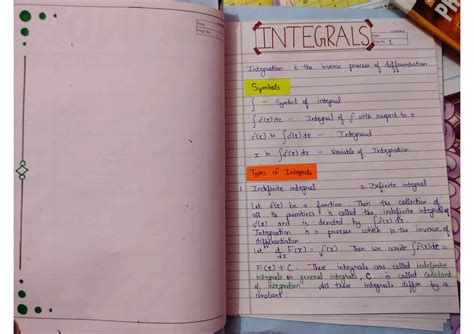 INTEGRALS
Date
Page No. 1
Integration is the inverse process of differentiation.
Symbols
∫ – Symbol of integral
∫f(x)dx – Integral of f with respect to x
f(x) in ∫f(x)dx – Integrand
x in ∫f(x)dx – Variable of Integration
Types of Integrals
1 Indefinite integral 2. Definite integral
Let f(x) be a function. Then the collection of
all its primitives is called the indefinite integral of
f(x) and is denoted by ∫f(x)dx.
Integration is a process which is the inverse of
differentiation
Let d/dx F(x) = f(x). Then we write ∫f(x)dx =
F(x) + C. These integrals are called indefinite
integrals or general integrals, C is called constant
of integration. All these integrals differ by a
constant